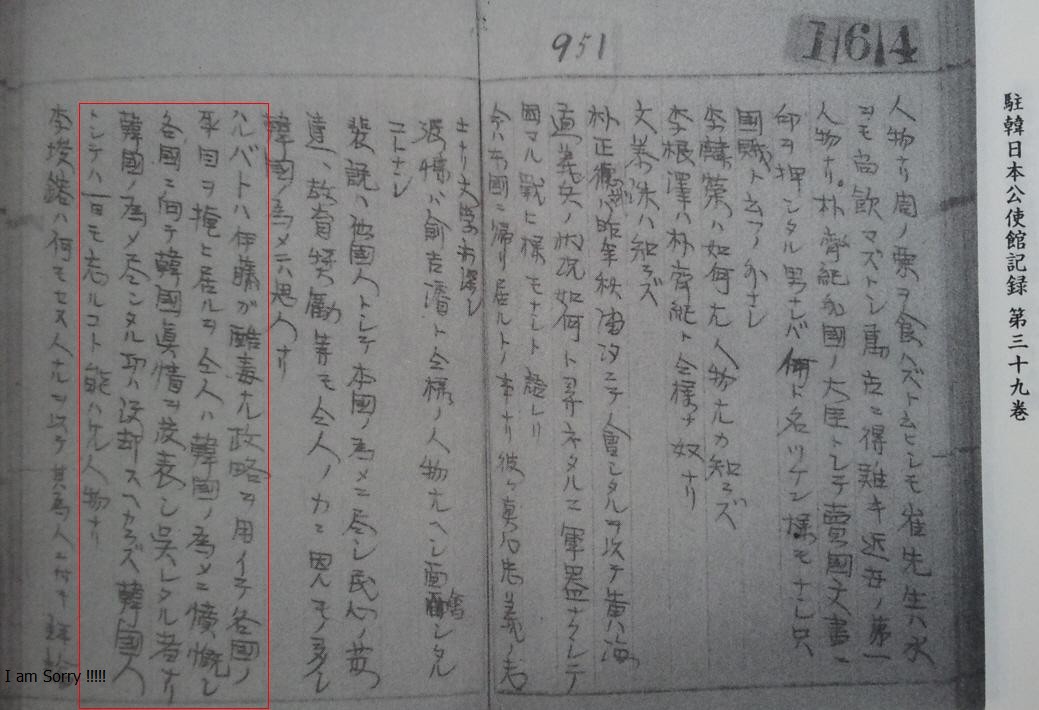 164
951
駐韓日本公使館記録 第三十九巻
人物ナリ周ノ粟ヲ食ハズト云ヒシモ崔先生ハ水
ヲモ尚飲マズトシ 得難キ近世ノ第一
人物ナリ。朴齊純 國ノ大臣トシテ賣國文書ニ
印ヲ押シタル男ナレバ何ト名ツケン様モナシ只
國賊ト云フノ外ナシ
李 ハ如何ナル人物ナルカ知ラズ
李根澤ハ朴齊純ト仝様ナ奴ナリ
文 洙ハ知ラズ
朴正 ハ昨年秋 ニテ會シタルヲ以テ黄海
道義兵ノ状況如何ト尋ネタルニ軍器ナクシテ
困マル戦ヒ様モナシト語レリ
今ハ本國ニ帰リ居ルトノ事ナリ彼ハ真ニ忠義ノ者
ナリ
張博ハ兪吉濬ト仝様ノ人物ナレ シタル
コトナシ
裴説ハ他國人トシテ本國ノ為メニ尽シ民心ノ
達、教育奨勵等モ仝人ノ力ニ因ルモノ多シ
韓國ノ為メニハ恩人ナリ
ハルバトハ伊藤ガ酷毒ナル政略ヲ用イテ各國ノ
耳目ヲ掩ヒ居ルヲ仝人ハ韓國ノ為メニ憤慨シ
各國ニ向テ韓國眞情ヲ發表シ呉レタル者ナリ
韓國ノ為メ尽シタル功ハ没却スヘカラズ韓國人
トシテハ一日モ忘ルコト能ハザル人物ナリ
李 ハ何モセヌ人ナルヲ以テ其為人ニ付テ
I am Sorry !!!!!